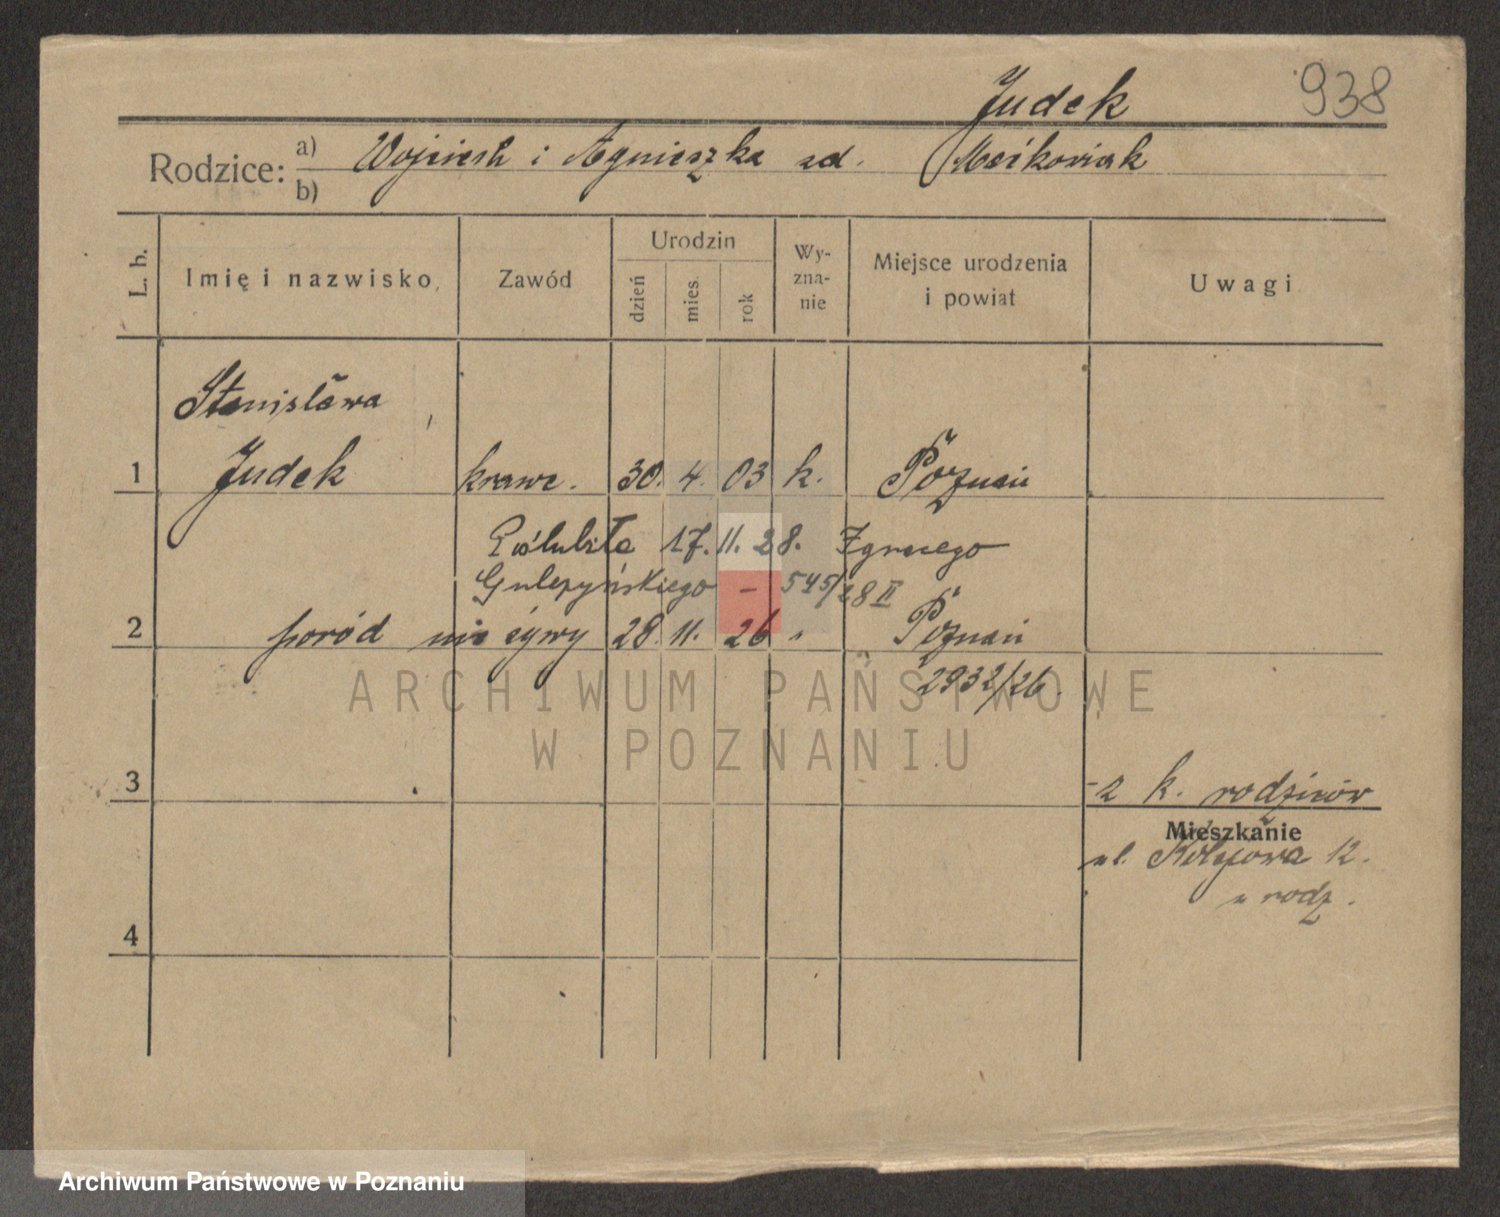 Judek 938
Rodzice: a) Wojciech i Agnieszka zd.
b)
L. b. Imię i nazwisko Zawód Urodzin dzień mies. rok Wy-zna-nie Miejsce urodzenia i powiat Uwagi
Stanisława
1 Judek krawc. 30. 4. 03 k. Poznań
Poślubiła 17. 11. 28. Ignacego
Gulczyńskiego – 545/28 II
2 poród nie żywy 28. 11. 26 Poznań
2932/26.
3 z k. rodziców
Mieszkanie
ul. 12.
u rodz.
4
ARCHIWUM PAŃSTWOWE
W POZNANIU
Archiwum Państwowe w Poznaniu